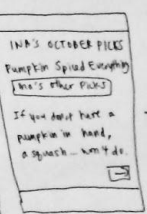 INA'S OCTOBER PICKS
Pumpkin Spiced Everything
Ina's Other Picks
If you don't have a
pumpkin in hand,
a squash... won't do.